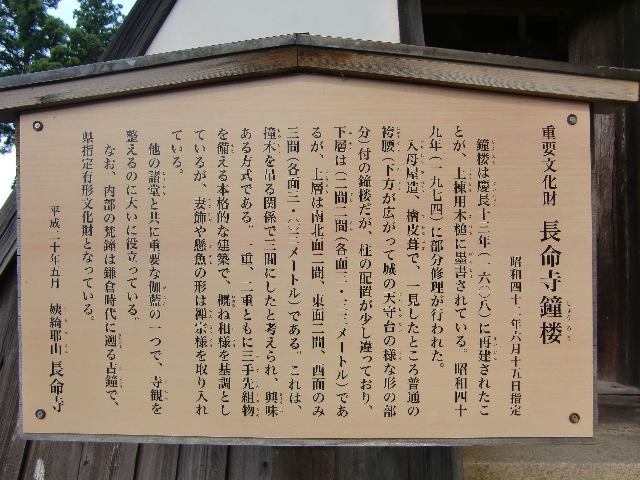 重要文化財　長命寺鐘楼
昭和四十二年六月十五日指定
鐘楼は慶長十三年（一六〇八）に再建されたこ
とが、上棟用木槌に墨書されている。昭和四十
九年（一九七四）に部分修理が行われた。
入母屋造、檜皮葺で、一見したところ普通の
袴腰（下方が広がって城の天守台の様な形の部
分）付の鐘楼だが、柱の配置が少し違っており、
下層は二間二間（各面三・三三メートル）であ
るが、上層は南北面二間、東面二間、西面のみ
三間（各面三・〇三メートル）である。これは、
撞木を吊る関係で三間にしたと考えられ、興味
ある方式である。一重、二重ともに三手先組物
を備える本格的な建築で、概ね和様を基調とし
ているが、妻飾や懸魚の形は禅宗様を取り入れ
ている。
他の諸堂と共に重要な伽藍の一つで、寺観を
整えるのに大いに役立っている。
なお、内部の梵鐘は鎌倉時代に遡る古鐘で、
県指定有形文化財となっている。
平成二十年五月　姨綺耶山　長命寺